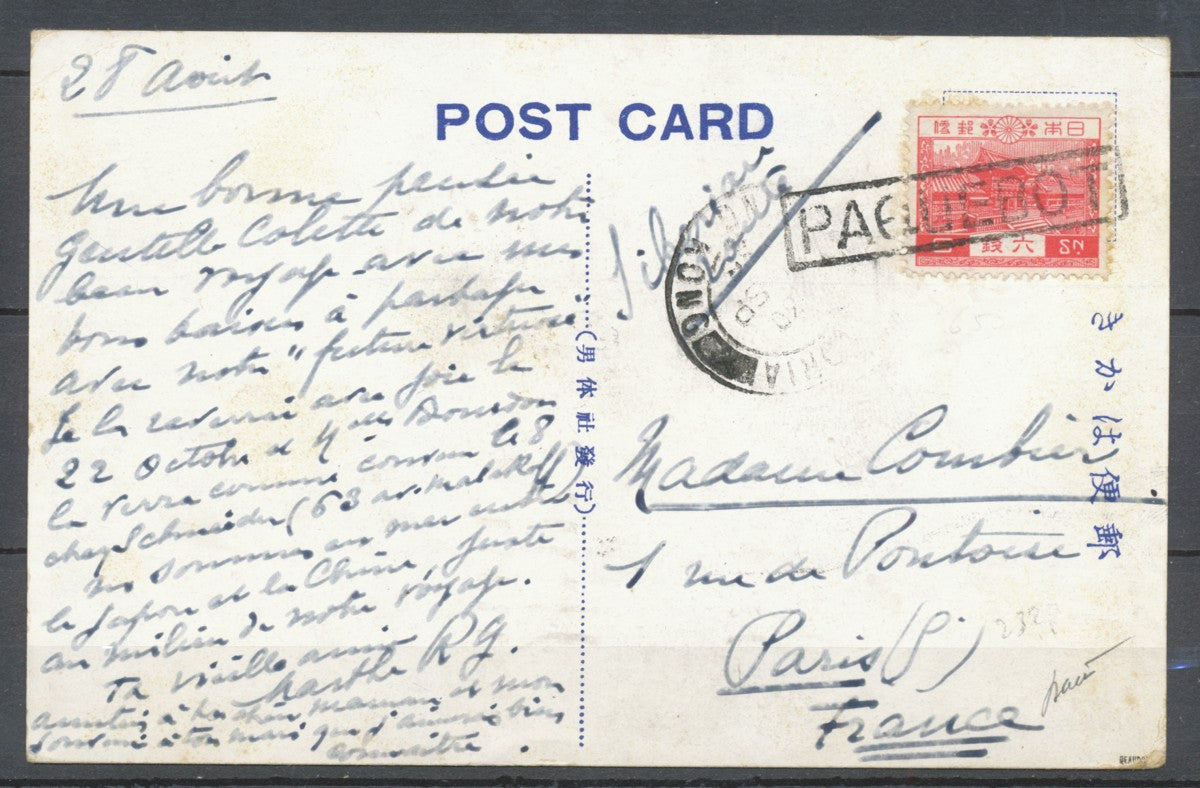 28 Août
POST CARD
Une bonne pensée
gentille Colette de notre
beau voyage avec mes
bons baisers à partager
avec notre "future virtuose
Je la reverrai avec joie le
22 Octobre d 4 Dourdon
le verre comme convenu le 8
chez Schneider (63 av. Malakoff)
ns sommes en mer entre
le Japon et la Chine, juste
au milieu de notre voyage.
Ta vieille amie
Marthe R G.
amitiés à ta chère maman et mon
souvenir à ton mari que j'aimerais bien
connaître.
(男体社發行)
Siberian
Route
PAQUEBOT
日本郵便
六銭
6 SN
KONG
VICTORIA
きかは便郵
Madame Combier
1 rue de Pontoise
Paris (5)
France